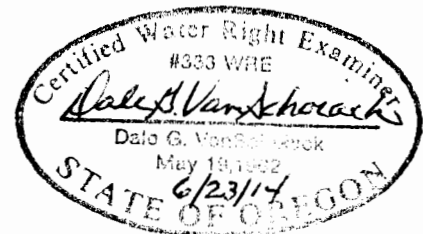 Certified Water Right Examiner
#333 WRE
Dale G. VanSchoiack
Dale G.
May 19,
6/23/14
STATE OF OREGON